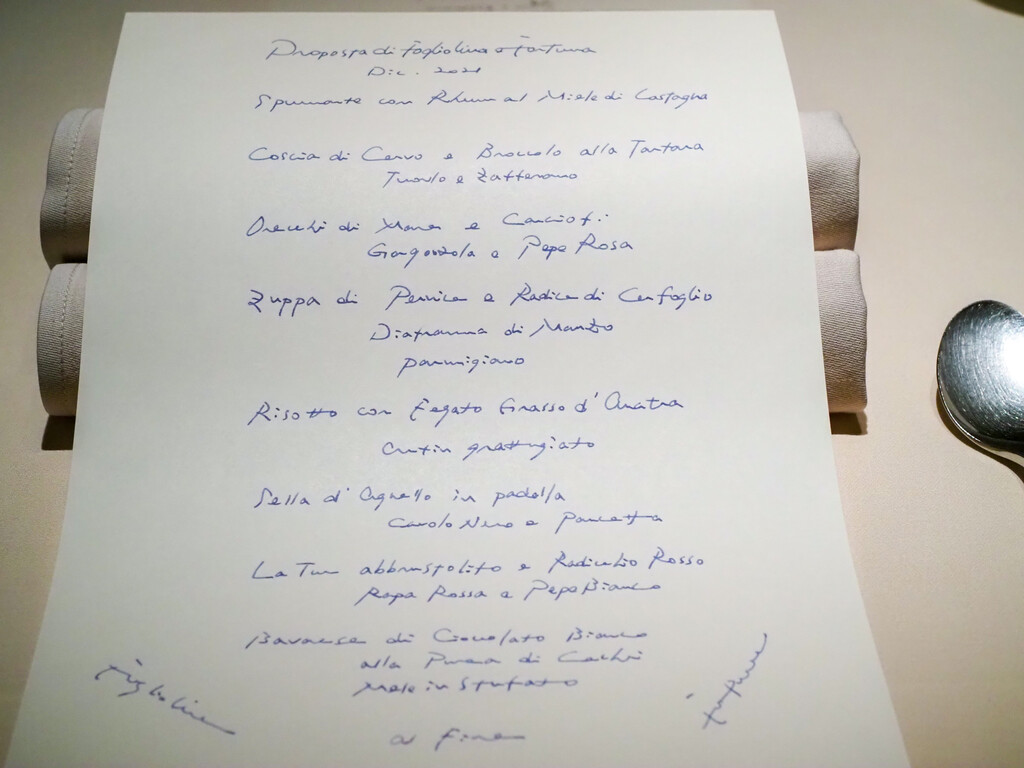 Proposta di Fogliolina o Fortuna
Dic. 2021
Spumante con Rhum al Miele di Castagna
Coscia di Cervo e Broccolo alla Tartara
Tuorlo e Zafferano
Orecchi di e Carciofi
Gorgonzola e Pepe Rosa
Zuppa di Pernice e Radice di Cerfoglio
Diaframma di Manzo
parmigiano
Risotto con Fegato Grasso d'Anatra
grattugiato
Sella d'Agnello in padella
Cavolo Nero e Pancetta
La Tur abbrustolito e Radicchio Rosso
Rapa Rossa e Pepe Bianco
Bavarese di Cioccolato Bianco
alla Purea di Cachi
Mele in Stufato
Fine